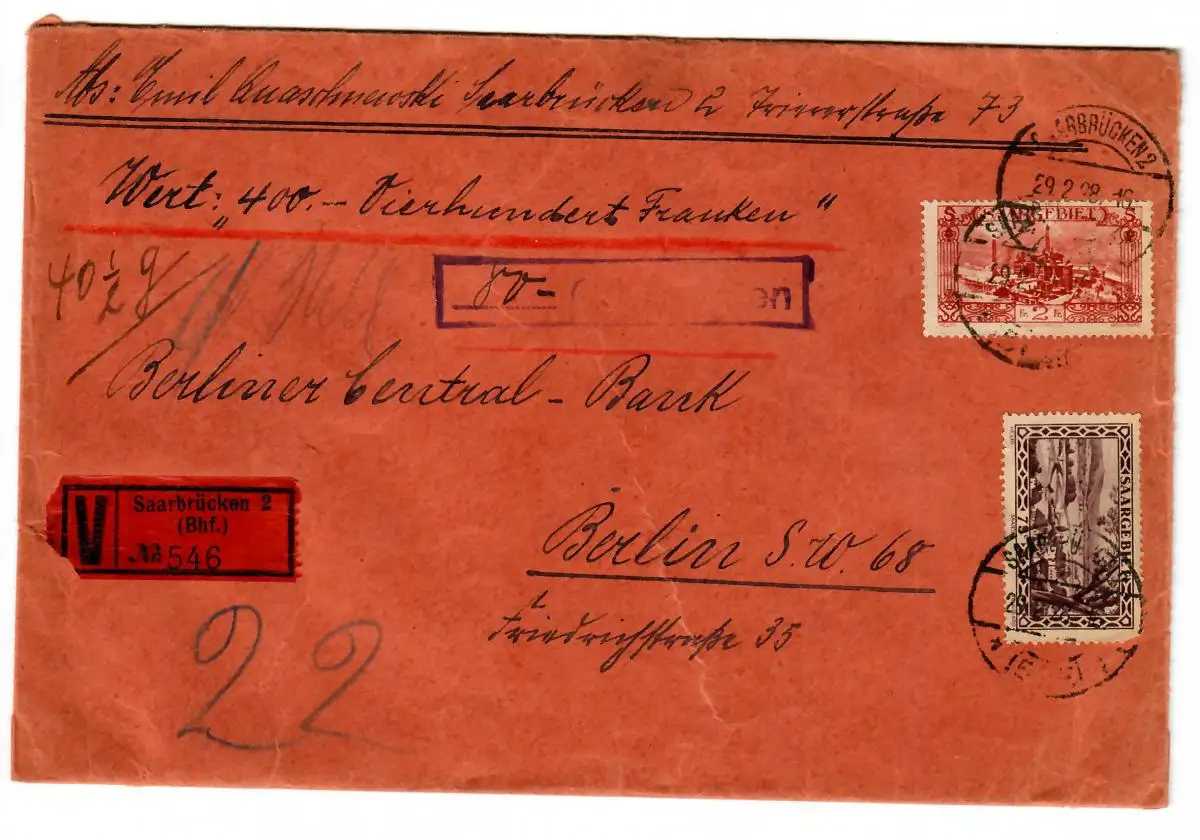 Abs: Emil Quaschnewski Saarbrücken 2 Triererstraße 73
SAARBRÜCKEN 2
29.2.28.16
Wert: "400.- Vierhundert Franken"
SAARGEBIET
Fr. 2 Fr.
40 1/2 g
80-
Berliner Central-Bank
SAARGEBIET
75
V
Saarbrücken 2
(Bhf.)
№ 546
Berlin S.W. 68
Friedrichstraße 35
22